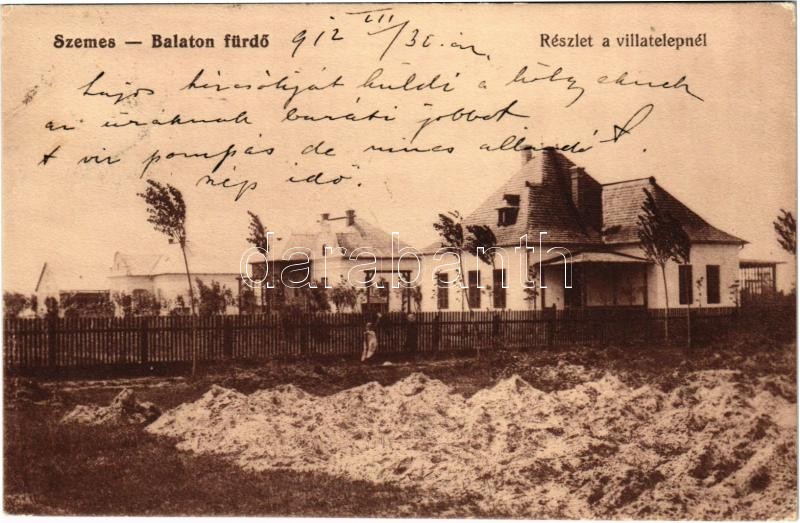 Szemes — Balaton fürdő
912 VII/30 án
Részlet a villatelepnél
Lajos kézcsókját küldi a hölgyeknek
az uraknak baráti jobbot
A víz pompás de nincs állandó
szép idő.
darabanth